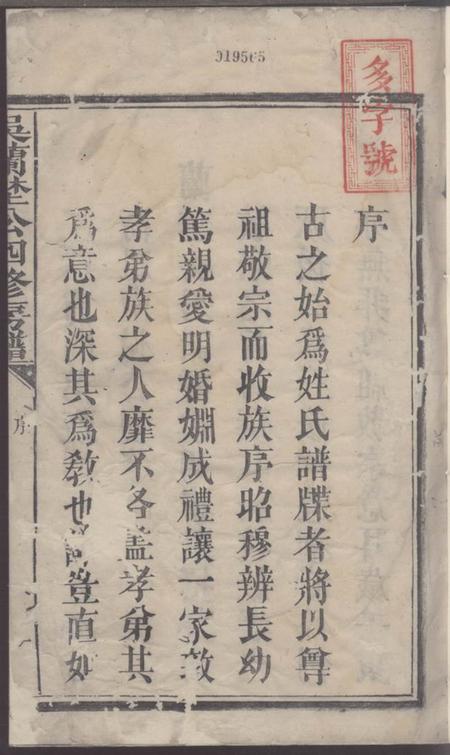 019565
多字號
序
古之始爲姓氏譜牒者將以尊
祖敬宗而收族序昭穆辨長幼
篤親愛明婚姻成禮讓一家敦
孝弟族之人靡不各盡孝弟其
爲意也深其爲教也豈直如
吳蘭埜公四修房譜
序